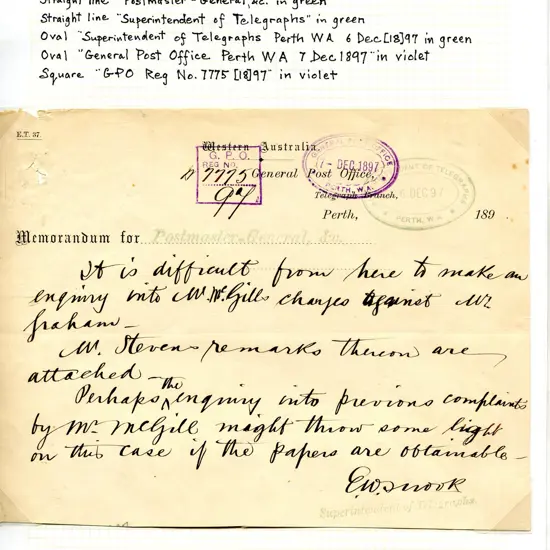 Straight line "Postmaster-General, &c. in green
Straight line "Superintendent of Telegraphs" in green
Oval "Superintendent of Telegraphs Perth WA 6 Dec [18]97 in green
Oval "General Post Office Perth WA 7 Dec 1897" in violet
Square "GPO Reg No. 7775 [18]97" in violet
E.T. 37.
Western Australia.
G. P. O.
REG NO.
7775
97
GENERAL POST OFFICE
7 - DEC 1897
PERTH, W.A.
General Post Office,
Telegraph Branch,
OF TELEGRAPHS
6 DEC 97
PERTH, W.A.
Perth, 189 .
Memorandum for Postmaster-General, &c.
It is difficult from here to make an
enquiry into Mr McGills charges against Mr
Graham —
Mr. Stevens remarks thereon are
attached —
Perhaps the enquiry into previous complaints
by Mr McGill might throw some light
on this case if the papers are obtainable —
E.W. Snook
Superintendent of Telegraphs.